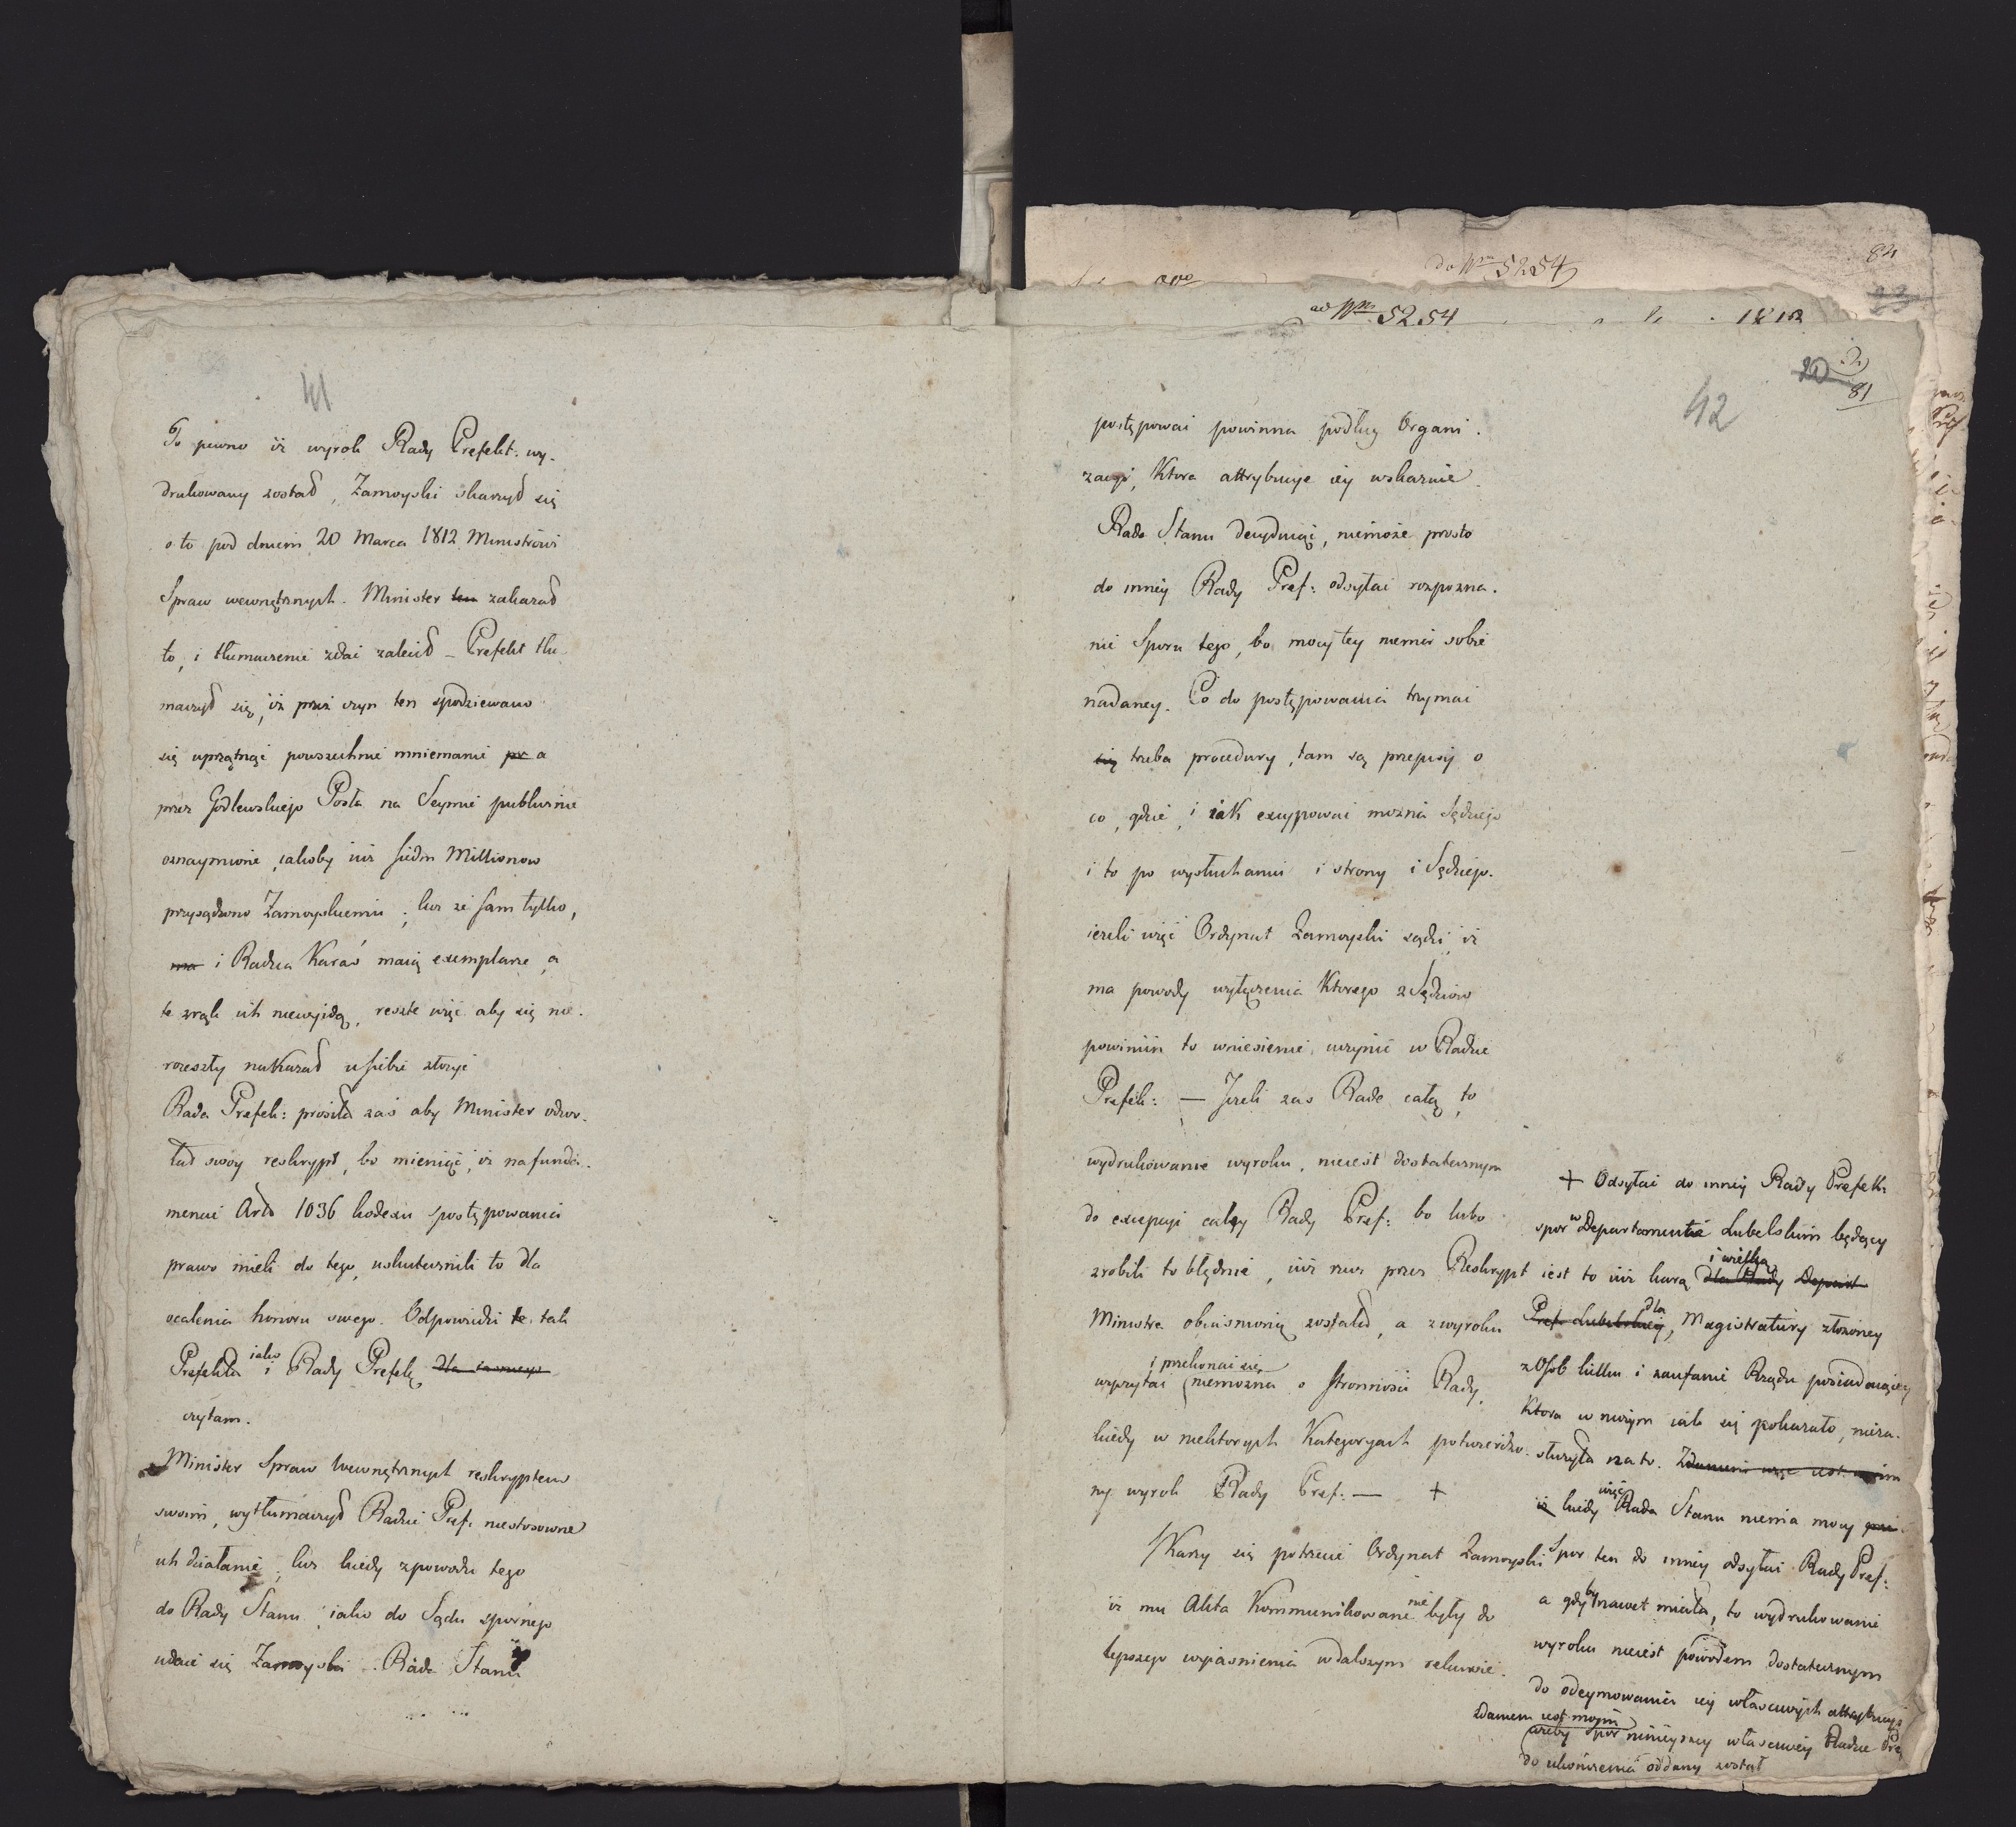 41
To pewno iż wyrok Rady Prefekt. wy-
drukowany został, Zamoyski skarżył się
o to pod dniem 20 Marca 1812 Ministrowi
Spraw wewnętrznych. Minister ten zakazał
to, i tłumaczenie zdać zalecił – Prefekt tłu-
maczył się, iż przez czyn ten spodziewano
się uprzątnąć powszechne mniemanie pr a
przez Godlewskiego Posła na Seymie publicznie
oznaymione, jakoby już siedm Millionow
przysądzono Zamoyskiemu; lecz że sam tylko,
ma i Radca Karaś maią exemplarze, a
te z rąk ich niewyidą, resztę więc aby się nie-
rozeszły nakazał u siebie złożyć
Rada Prefek: prosiła zaś aby Minister odwo-
łał swoy reskrypt, bo mieniąc, iż na funda-
mencie Artło 1036 kodexu postępowania
prawo mieli do tego, uskutecznili to dla
ocalenia honoru swego. Odpowiedzi te tak
Prefekta iako i Rady Prefek:
czytam.
Minister Spraw Wewnętrznych reskryptem
swoim, wytłumaczył Radzie Pref. niestosowne
ich działanie; lecz kiedy z powodu tego
do Rady Stanu, iako do Sądu spornego
udaie się Zamoyski – Rada Stanu
do Nru 5254
84
ad Nrum 5254
1812
20
81
42
postępować powinna podług Organi-
zacyi, Ktora attrybucye iey wskaznie.
Rada Stanu decyduiąc, niemoże prosto
do inney Rady Pref: odsyłać rozpozna-
nie Sporu tego, bo mocy tey niema sobie
nadaney. Co do postępowania trzymać
się trzeba procedury, tam są przepisy o
co, gdzie, i iak excypować można Sędziego
i to po wysłuchaniu i strony i Sędziego.
ieżeli więc Ordynat Zamoyski sądzi, iż
ma powody wyłączenia Ktorego z Sędziow
powinien to wniesienie uczynić w Radzie
Prefek: — Jeżeli zas Rade całą, to
wydrukowanie wyroku, nieiest dostatecznym
do excepcyi całey Rady Pref: bo lubo
zrobili to błędnie, iuż rzecz przez Reskrypt
Ministra obiaśnioną została, a z wyroku
i przekonać się
wyczytać niemożna o stronności Rady,
kiedy w niektorych Kategoryach potwierdzo-
ny wyrok Rady Pref: — +
Skarży się potrzecie Ordynat Zamoyski
iż mu Akta Kommunikowane nie były do
lepszego wyiasnienia w dalszym celu
+ Odsyłać do inney Rady Prefek:
spor w Departamencie Lubelskim będący
i wielką
iest to iuż karą dla Rady Depart
Pref. Lubelskiey, dla Magistratury złożoney
z Osob kilku i zaufanie Rządu posiadaiącey
Ktora w niczym iak się pokazało, nieza-
służyła na to. Zdaniem więc iest moim
iż kiedy więc Rada Stanu niema mocy
Spor ten do inney odsyłać Rady Pref:
a gdyby nawet miała, to wydrukowanie
wyroku nieiest powodem dostatecznym
do odeymowania iey właściwych attrybucyi
zdaniem iest moim
ażeby spor ninieyszy właściwey Radzie Pref
do ukończenia oddany został